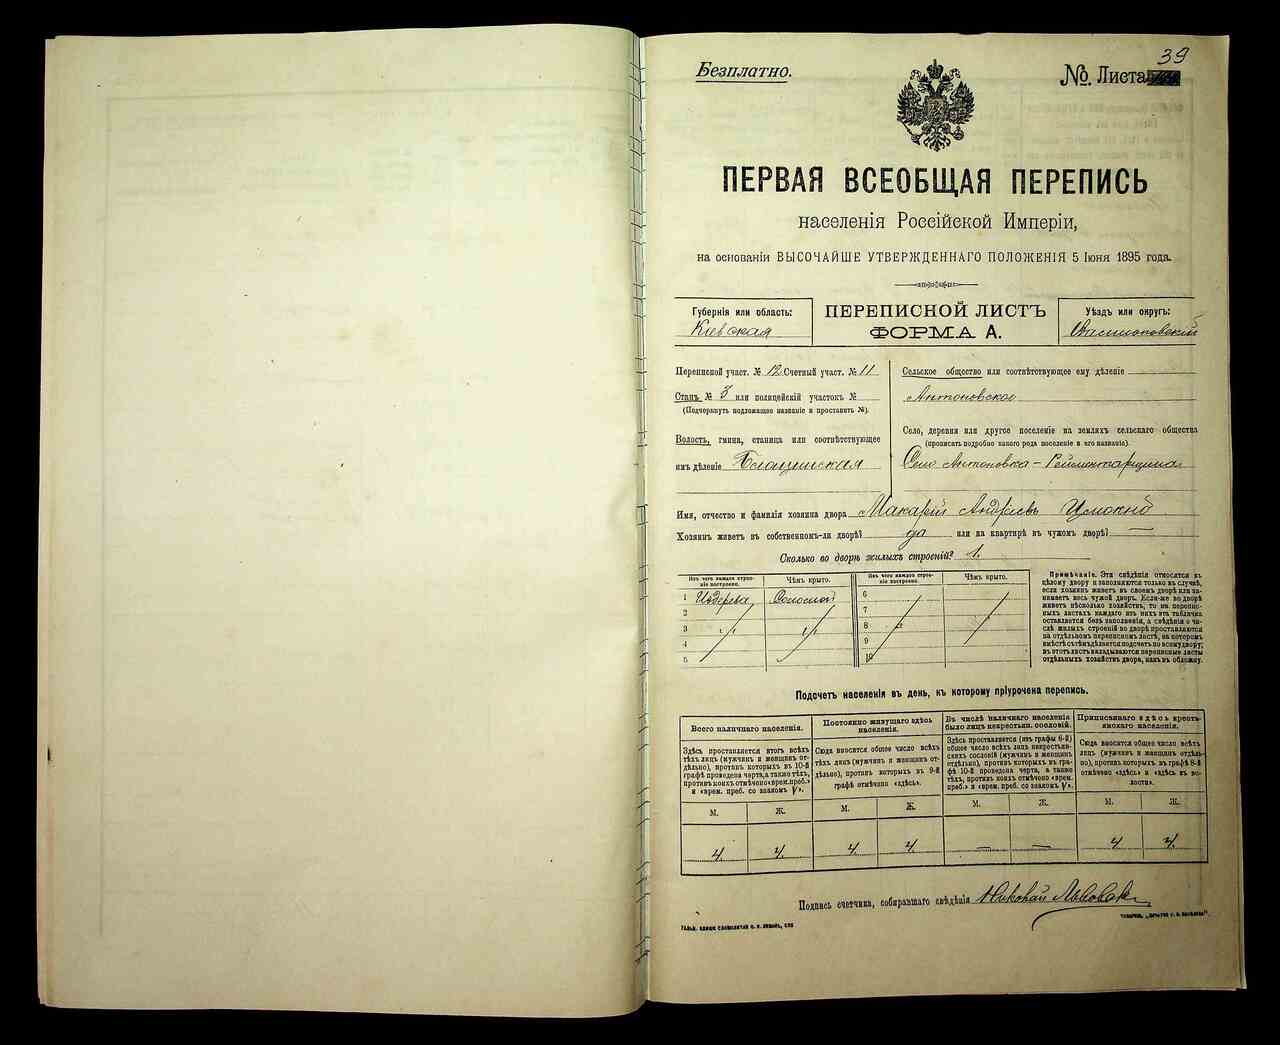 39
Безплатно.
№. Листа
ПЕРВАЯ ВСЕОБЩАЯ ПЕРЕПИСЬ
населенія Россійской Имперіи,
на основаніи ВЫСОЧАЙШЕ УТВЕРЖДЕННАГО ПОЛОЖЕНІЯ 5 Іюня 1895 года.
Губернія или область:
Кіевская
ПЕРЕПИСНОЙ ЛИСТЪ
ФОРМА А.
Уѣздъ или округъ:
Переписной участ. № 12 Счетный участ. № 11
Станъ № 3 или полицейскій участокъ №
(Подчеркнуть подлежащее названіе и проставить №).
Волость, гмина, станица или соотвѣтствующее
имъ дѣленіе
Сельское общество или соотвѣтствующее ему дѣленіе
Антоновское
Село, деревня или другое поселеніе на земляхъ сельскаго общества
(прописать подробно какого рода поселеніе и его названіе).
Село Антоновка-
Имя, отчество и фамилія хозяина двора Макарій Андріевъ
Хозяинъ живетъ въ собственномъ-ли дворѣ? да или на квартирѣ въ чужомъ дворѣ? —
Сколько во дворѣ жилыхъ строеній? 1.
Изъ чего каждое строеніе построено. Чѣмъ крыто. Изъ чего каждое строеніе построено. Чѣмъ крыто.
1 Издерева Соломой 6
2 7
3 8
4 9
5 10
Примѣчаніе. Эта свѣдѣнія относятся къ
цѣлому двору и заполняются только въ случаѣ,
если хозяинъ живетъ въ своемъ дворѣ или занимаетъ
весь чужой дворъ. Если-же во дворѣ
живетъ нѣсколько хозяйствъ, то на переписныхъ
листахъ каждаго изъ нихъ эта табличка
оставляется безъ заполненія, а свѣдѣнія о числѣ
жилыхъ строеній во дворѣ проставляются
на отдѣльномъ переписномъ листѣ, на которомъ
вмѣстѣ съ тѣмъ дѣлается подсчетъ по всему двору;
въ этотъ листъ вкладываются переписные листы
отдѣльныхъ хозяйствъ двора, какъ въ обложку.
Подсчетъ населенія въ день, къ которому пріурочена перепись.
Всего наличнаго населенія.
Здѣсь проставляется итогъ всѣхъ
тѣхъ лицъ (мужчинъ и женщинъ отдѣльно),
противъ которыхъ въ 10-й
графѣ проведена черта, а также тѣхъ,
противъ коихъ отмѣчено «врем. преб.»
и «врем. преб. со знакомъ V».
Постоянно живущаго здѣсь
населенія.
Сюда вносится общее число всѣхъ
тѣхъ лицъ (мужчинъ и женщинъ отдѣльно),
противъ которыхъ въ 9-й
графѣ отмѣчено «здѣсь».
Въ числѣ наличнаго населенія
было лицъ некрестьян. сословій.
Здѣсь проставляется (изъ графы 6-й)
общее число всѣхъ лицъ некрестьянскихъ
сословій (мужчинъ и женщинъ
отдѣльно), противъ которыхъ въ графѣ
10-й проведена черта, а также
тѣхъ, противъ коихъ отмѣчено «врем.
преб.» и «врем. преб. со знакомъ V».
Приписаннаго здѣсь крестьянскаго
населенія.
Сюда вносится общее число всѣхъ
лицъ (мужчинъ и женщинъ отдѣльно),
противъ которыхъ въ графѣ 8-й
отмѣчено «здѣсь» и «здѣсь въ волости».
М. Ж. М. Ж. М. Ж. М. Ж.
4 4. 4. 4. — — 4 4.
Подпись счетчика, собиравшаго свѣдѣнія Николай